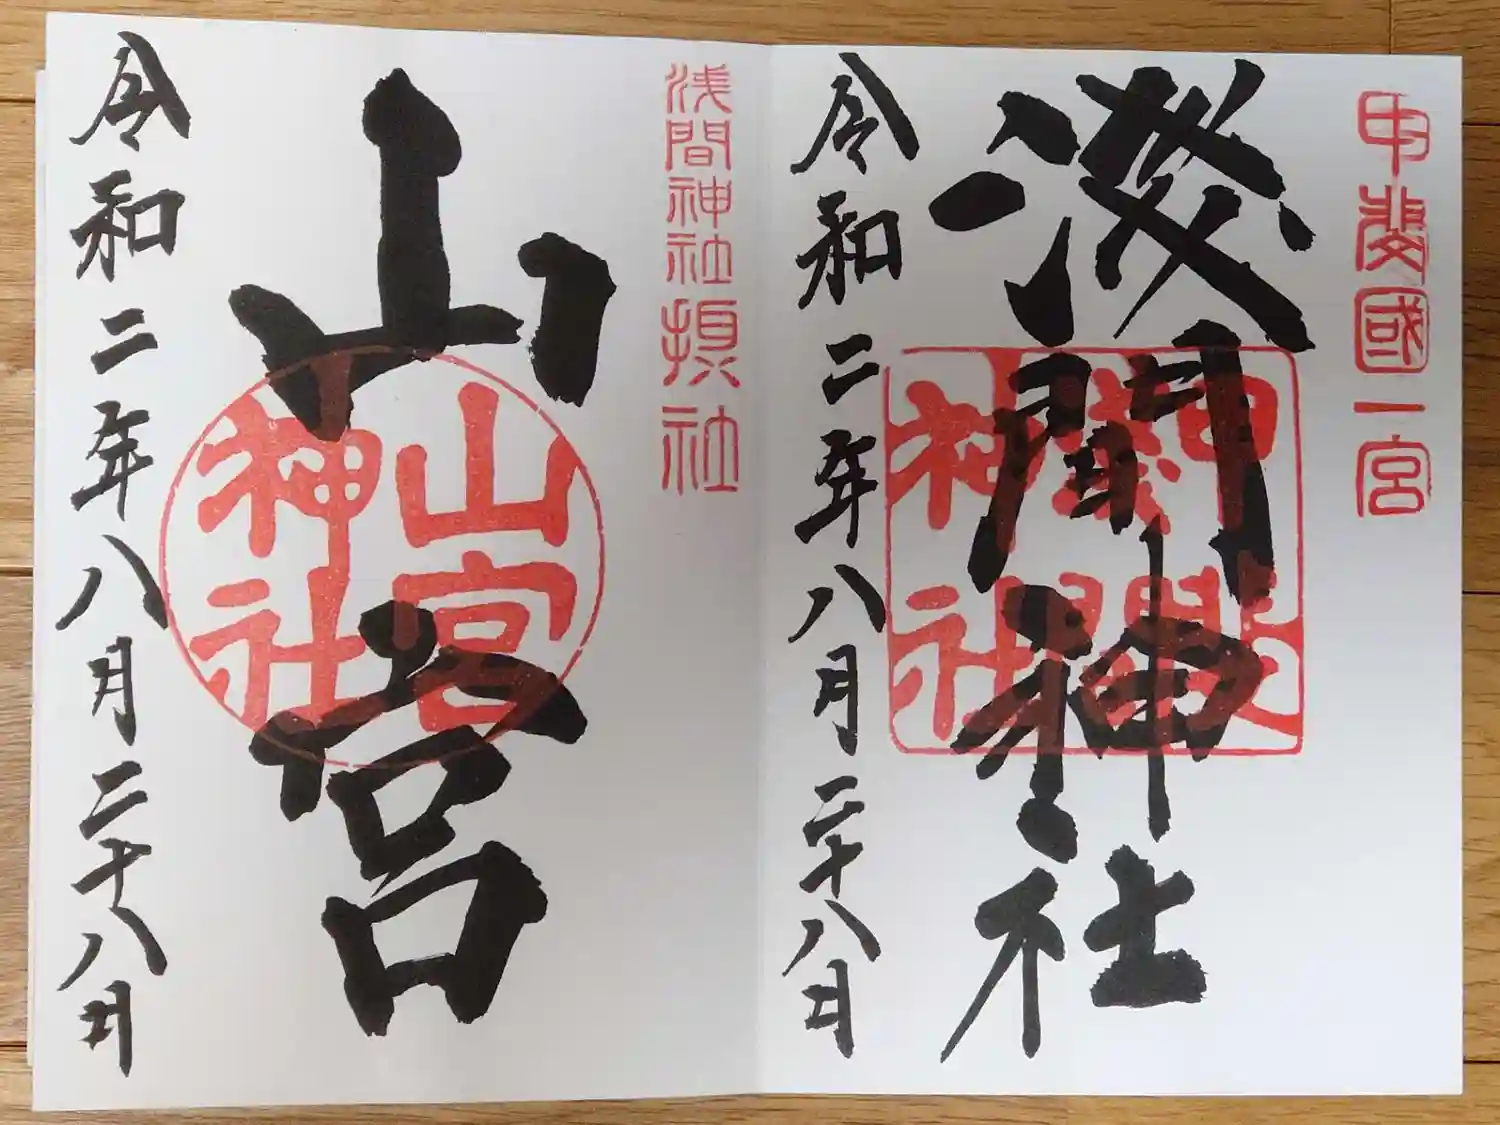 甲斐國一宮
浅間神社
甲斐國
浅間
神社
令和二年八月二十八日
浅間神社摂社
山宮
山宮
神社
令和二年八月二十八日